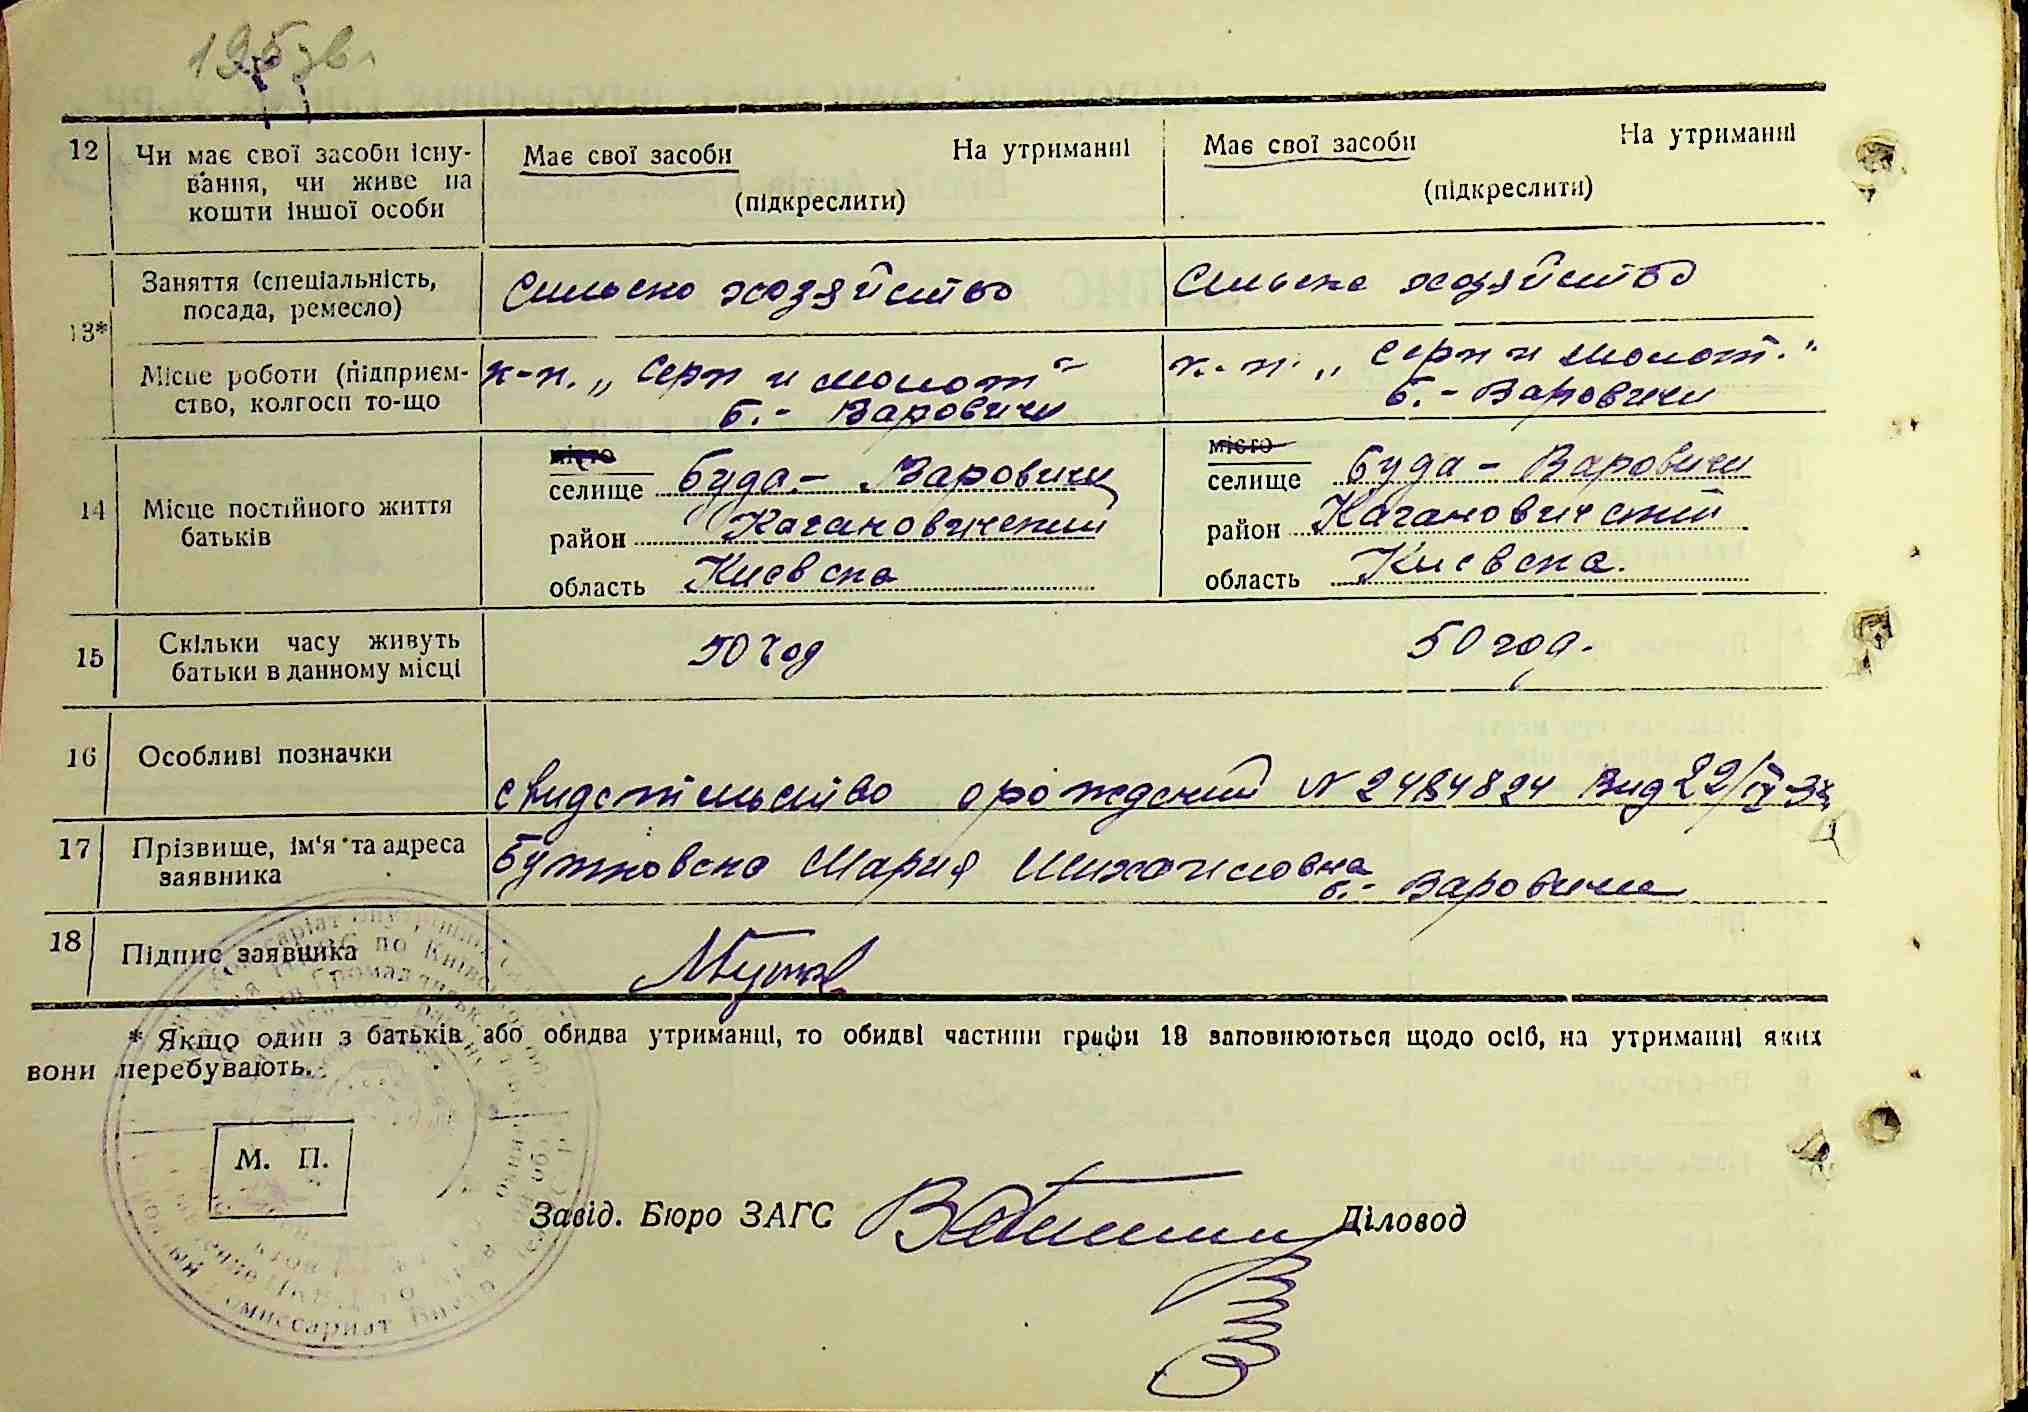 12 Чи має свої засоби існу- Має свої засоби На утриманні Має свої засоби На утриманні
вання, чи живе на (підкреслити) (підкреслити)
кошти іншої особи
13* Заняття (спеціальність, Сильско хозяйство Сильске хозяйство
посада, ремесло)
Місце роботи (підприєм- к-п. „Серп и молот" к.-п. „Серп и молот."
ство, колгосп то-що б.- Варовичи б.- Варовичи
місто місто
селище Буда - Варовичи селище Буда - Варовичи
14 Місце постійного життя район Кагановичский район Кагановичский
батьків область Киевска область Киевска.
15 Скільки часу живуть 50 год 50 год.
батьки в данному місці
16 Особливі позначки
свидетільство орождений N 2484824 Вид 22/
17 Прізвище, ім'я та адреса Мария Михайловна
заявника б.- Варовичи
18 Підпис заявника
* Якщо один з батьків або обидва утриманці, то обидві частини графи 18 заповнюються щодо осіб, на утриманні яких
вони перебувають.
М. П.
Завід. Бюро ЗАГС Діловод